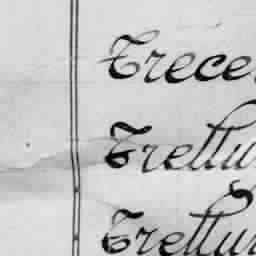 Trece
Trettu
Trettu